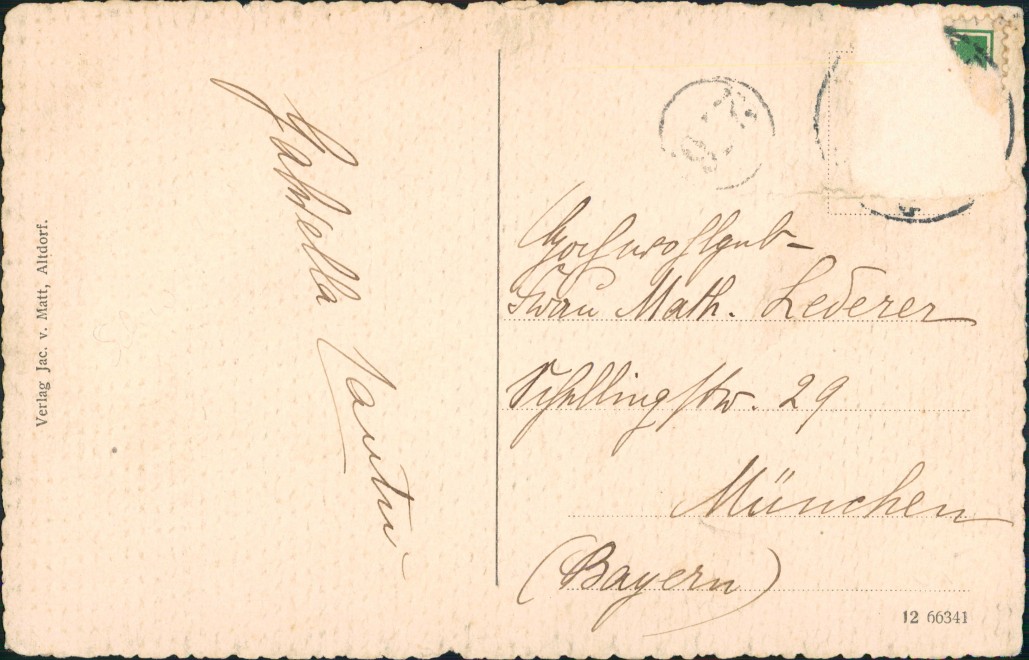 Verlag Jac. v. Matt, Altdorf.
Hochwohlgeb-
Frau Math. Lederer
Schellingstr. 29
München
(Bayern)
12 66341